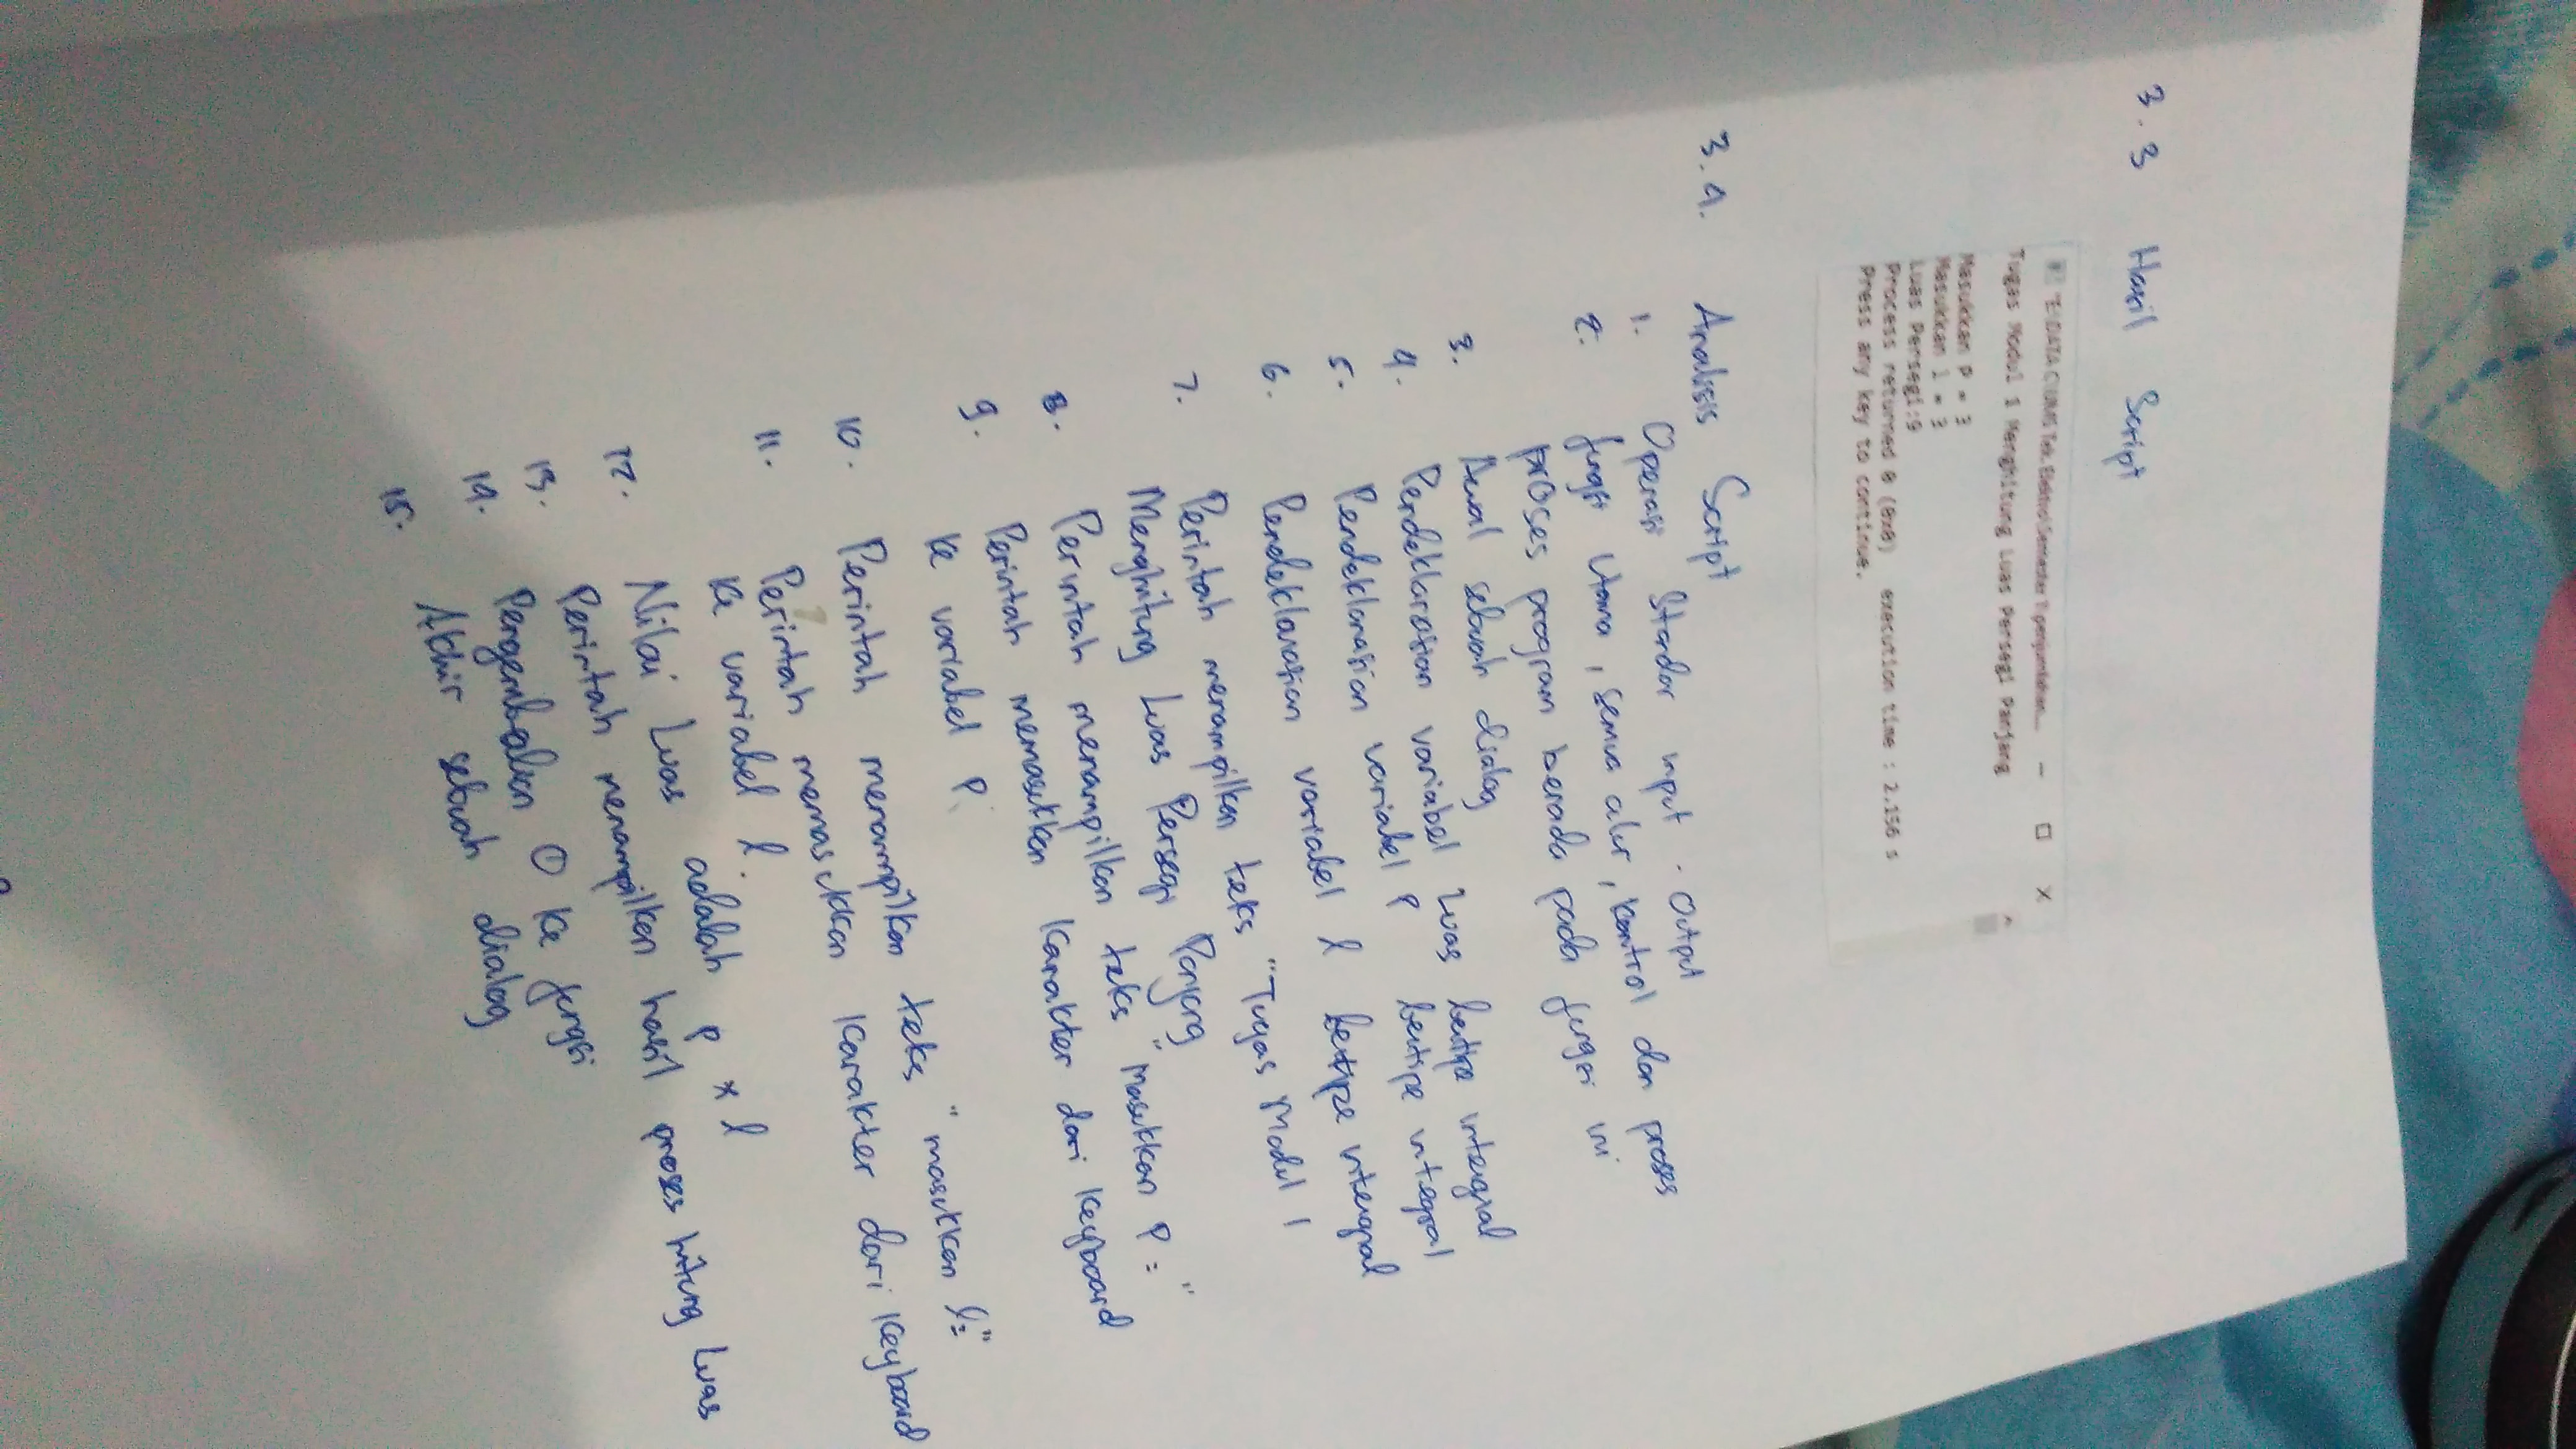 3.3 Hasil Script
"E:\DATA C\UMS Tek.Elektro\Semester 1\penjumlahan... — □ X
Tugas Modul 1 Menghitung Luas Persegi Panjang
Masukkan P = 3
Masukkan l = 3
Luas Persegi:9
Process returned 0 (0x0) execution time : 2.156 s
Press any key to continue.
3.4. Analisis Script
1. Operasi Standar input - Output
2. fungsi Utama, semua alur, kontrol dan proses
proses program berada pada fungsi ini
3. Awal sebuah dialog
4. Pendeklarasian variabel Luas bertipe integral
5. Pendeklarasian variabel P bertipe integral
6. Pendeklarasian variabel l bertipe integral
7. Perintah menampilkan teks "Tugas Modul 1
Menghitung Luas Persegi Panjang
8. Perintah menampilkan teks "Masukkan P = "
9. Perintah memasukkan Karakter dari Keyboard
ke variabel P.
10. Perintah menampilkan teks "masukkan l="
11. Perintah memasukkan Karakter dari Keyboard
ke variabel l.
12. Nilai Luas adalah P * l
13. Perintah menampilkan hasil proses hitung Luas
14. Pengembalian 0 ke fungsi
15. Akhir sebuah dialog